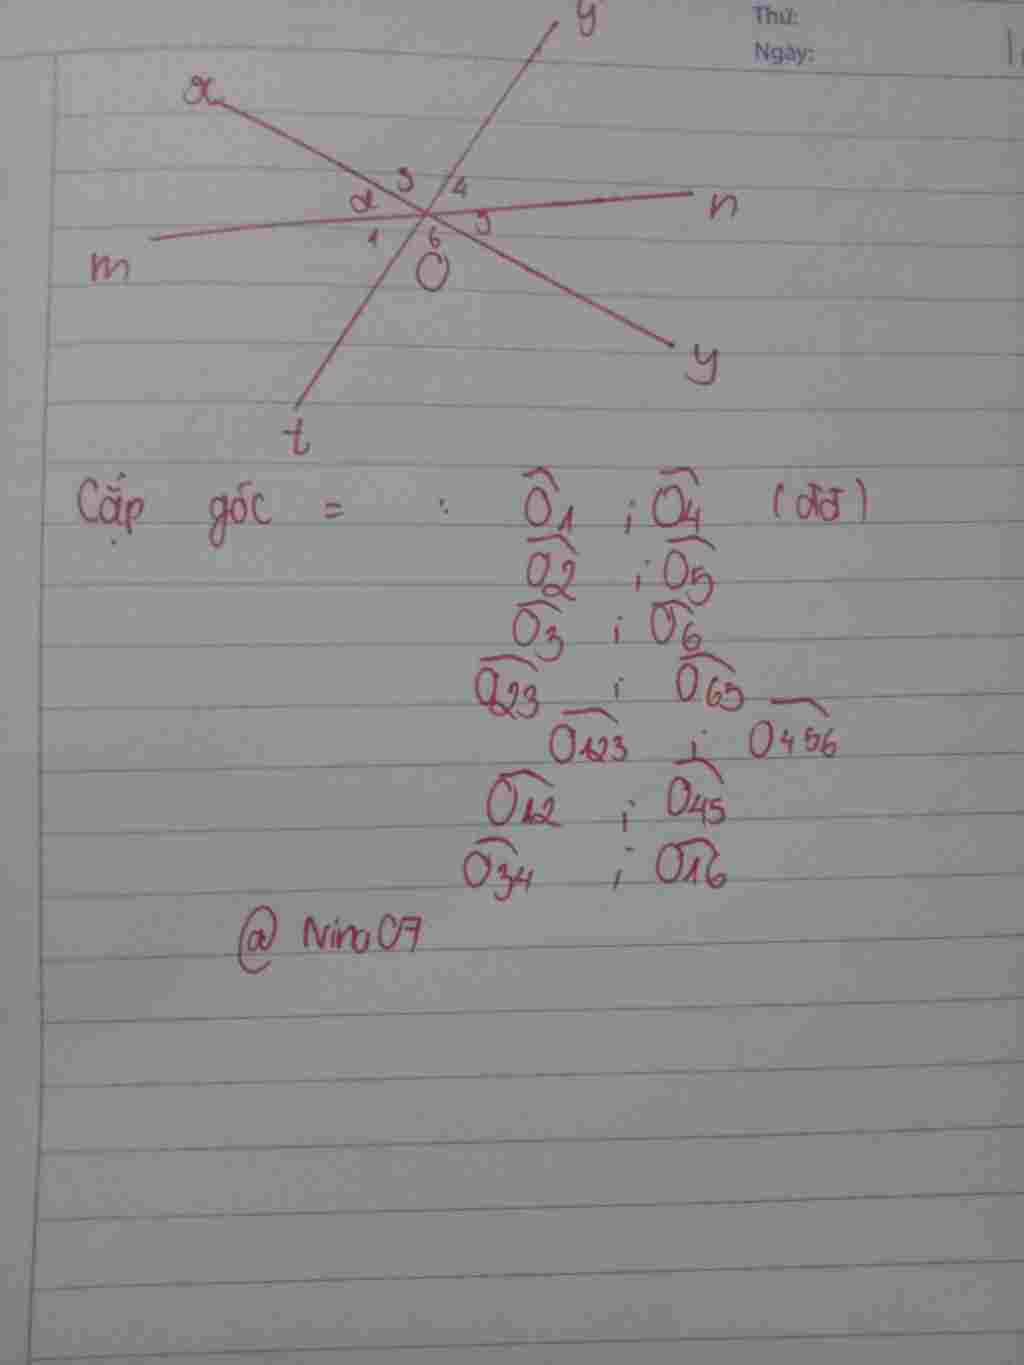 Thứ:
Ngày:
y
x
3
4
2
n
5
1
6
m
O
y
t
Cặp góc = : O1 ; O4 (đđ)
O2 ; O5
O3 ; O6
O23 ; O65
O123 ; O456
O12 ; O45
O34 ; O16
@ Nino07